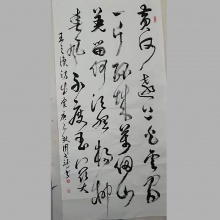 黄河遠上白雲间
一片孤城萬仞山
羌笛何須怨楊柳
春風不度玉门关
王之渙詩